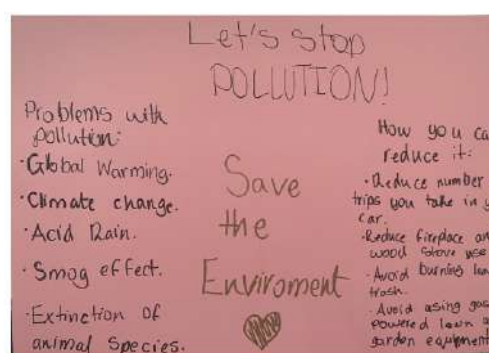 Let's stop
POLLUTION!
Problems with
pollution:
·Global Warming.
·Climate change.
·Acid Rain.
·Smog effect.
·Extinction of
animal species.
Save
the
Enviroment
NOW
How you ca
reduce it:
·Reduce number
trips you take in y
car.
·Reduce fireplace an
wood stove use
·Avoid burning lea
trash.
·Avoid using gas
powered lawn a
garden equipment